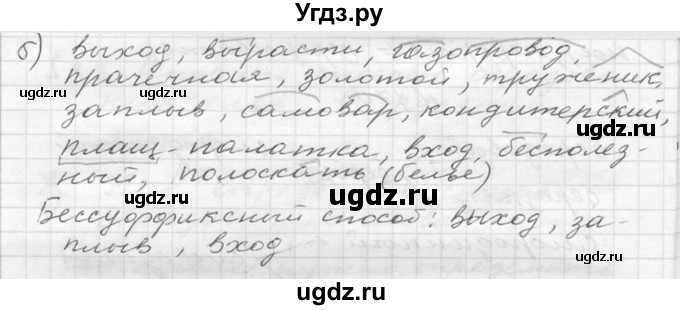 Угдз.ру
б) выход, вырасти, газопровод,
прачечная, золотой, труженик,
заплыв, самовар, кондитерский,
плащ-палатка, вход, бесполез-
ный, полоскать (белье)
Бессуффиксный способ: выход, за-
плыв, вход
ugdz.ru
ugdz.ru
ugdz.ru
ugdz.ru
ugdz.ru
ugdz.ru
ugdz.ru
ugdz.ru
ugdz.ru